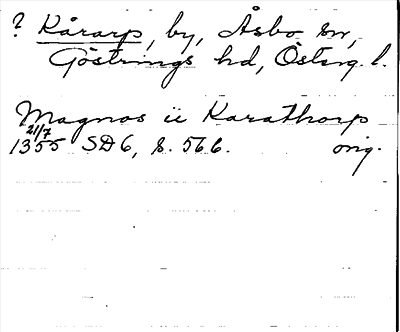 ? Kårarp, by, Åsbo sn,
Göstrings hd, Österg. l.
Magnos ii Karathorp
21/7
1355 SD 6, s. 566. orig.